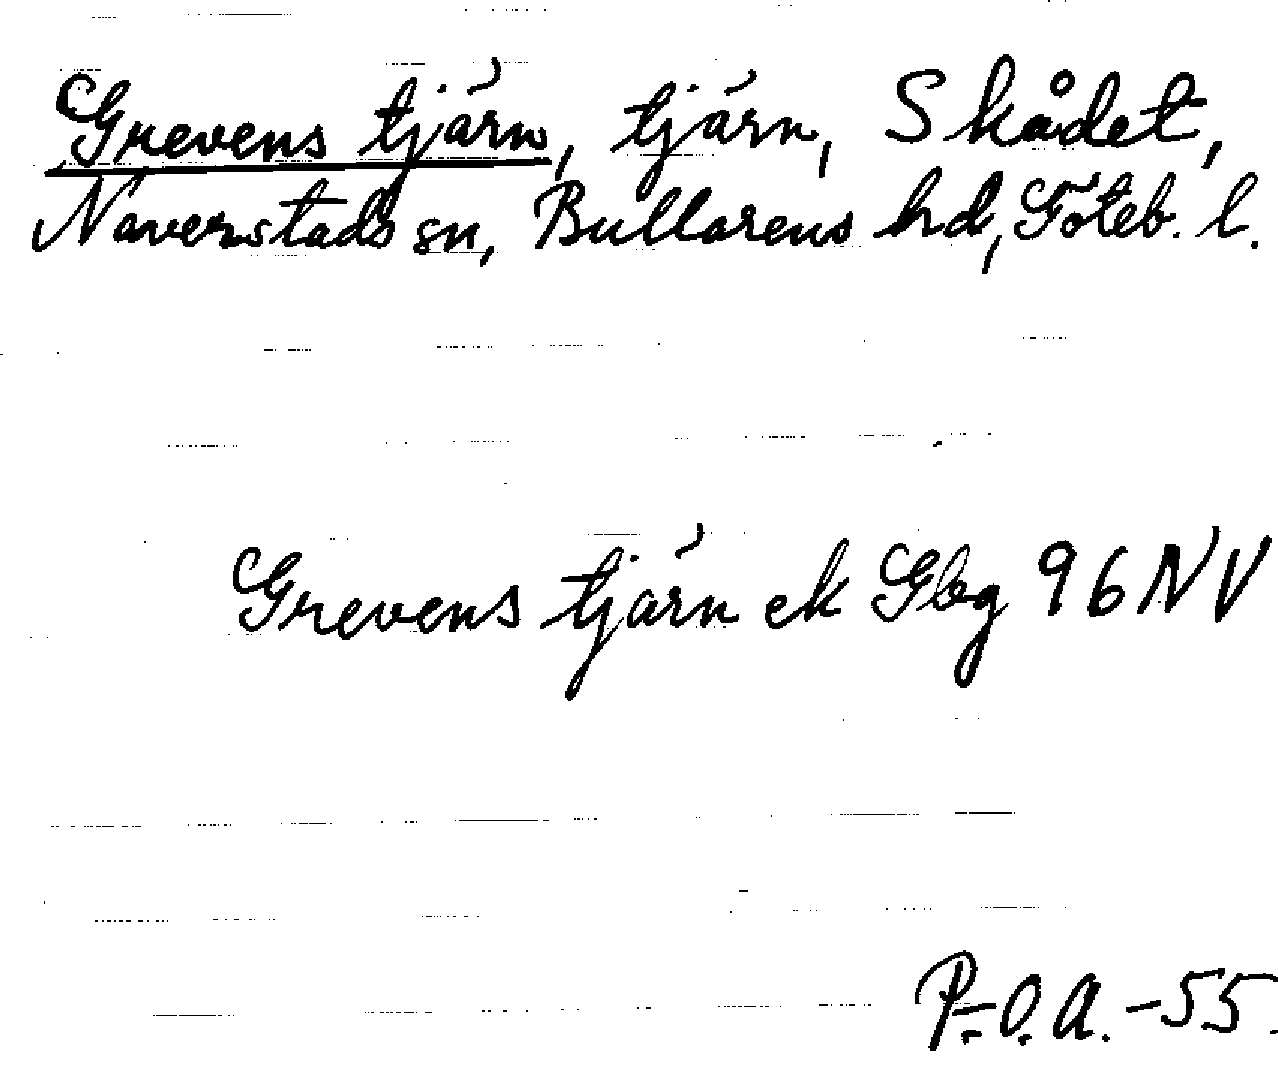 Grevens tjärn, tjärn, Skådet,
Naverstads sn, Bullarens hd, Göteb. l.
Grevens tjärn ek Gbg 96 NV
P.-O. A. -55.